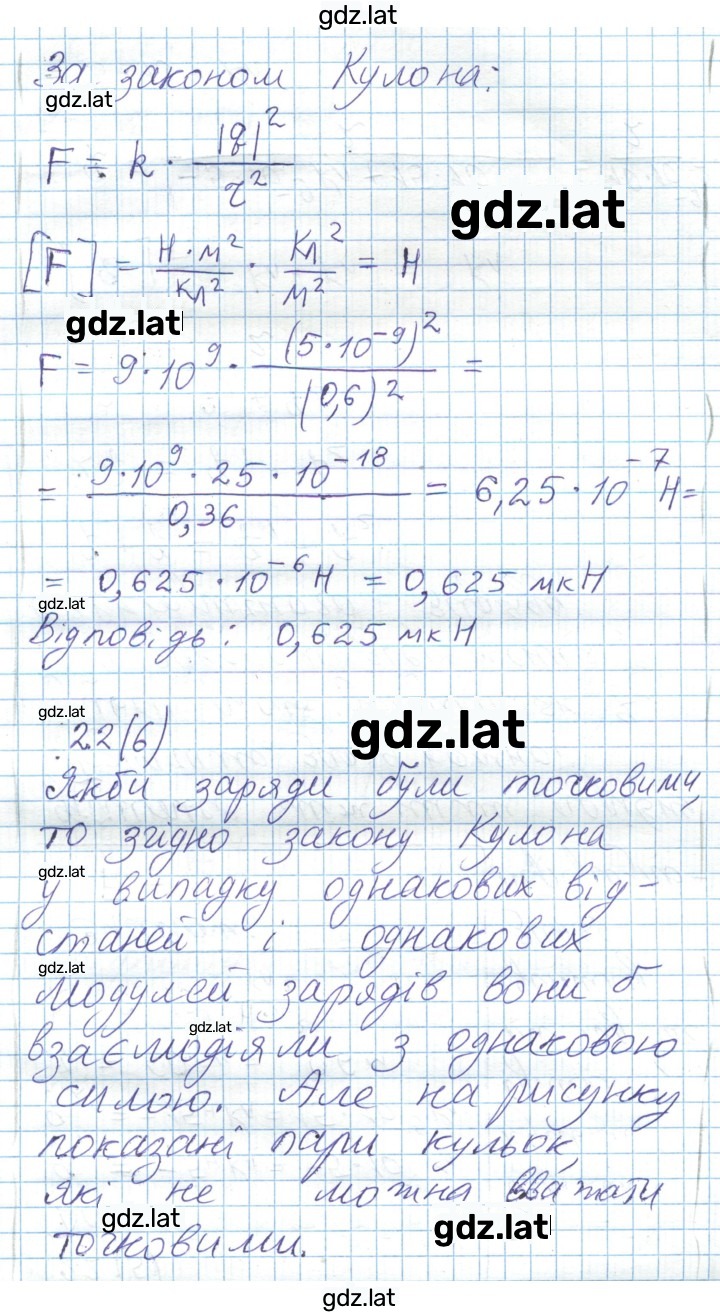 gdz.lat
За законом Кулона:
gdz.lat
F = k · |q|² / r²
gdz.lat
[F] = Н·м² / Кл² · Кл² / м² = Н
gdz.lat
F = 9·10⁹ · (5·10⁻⁹)² / (0,6)² =
= 9·10⁹ · 25 · 10⁻¹⁸ / 0,36 = 6,25·10⁻⁷ Н =
= 0,625·10⁻⁶ Н = 0,625 мкН
gdz.lat
Відповідь: 0,625 мкН
gdz.lat
gdz.lat
22(6)
Якби заряди були точковими,
то згідно закону Кулона
gdz.lat
у випадку однакових від-
станей і однакових
gdz.lat
модулей зарядів вони б
gdz.lat
взаємодіяли з однаковою
силою. Але на рисунку
показані пари кульок,
які не можна вважати
gdz.lat
точковими.
gdz.lat
gdz.lat